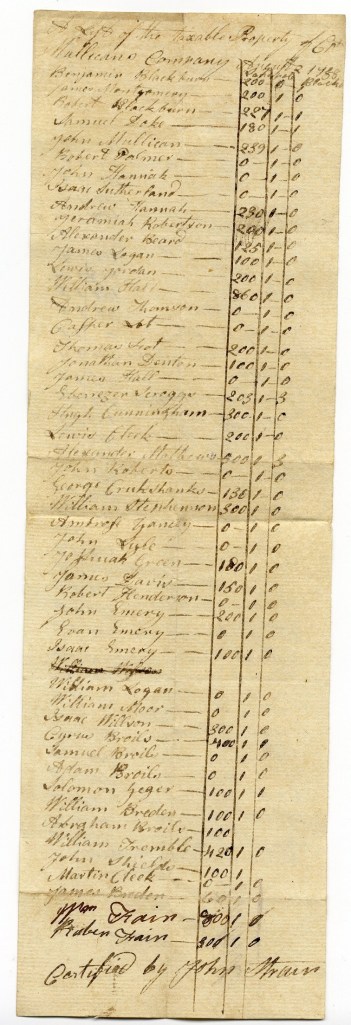 A List of the Taxable Property of Cpt
Mullicans Company
Benjamin Blackburn 200 0
James Montgomery 200 1 0
Robert Blackburn 227 1-1
Samuel Doke 180 1-1
John Mullican 239 1-0
Robert Palmer 0-1-0
John Hannah 0-1-0
Isaac Sutherland 0-1-0
Andrew Hannah 230 1-0
Jeremiah Robertson 200 1-0
Alexander Beard 125 1-0
James Logan 100 1-0
Lewis Jordan 200 1-0
William Hall 860 1-0
Andrew Thomson 0-1-0
Casper 0-1-0
Thomas 200 1-0
Jonathan Denton 100 1-0
James Hall 0-1-0
Ebenezer Scroggs 205 1-3
Hugh Cunningham 300 1-0
Lewis Cleek 200 1-0
Alexander Mathews 500 1-3
John Roberts 0-1-0
George Crukshanks 136 1-0
William Stephenson 500 1-0
Ambrose 0-1 0
John Lyle 0-1 0
Green 180 1 0
James Davis 150 1 0
Robert Henderson 0-1 0
John Emery 200 1 0
Evan Emery 0 1 0
Isaac Emery 100 1 0
William
William Logan 0 1 0
William Moor 0 1 0
Isaac Willson 300 1 0
Cyrus Broils 400 1 0
Samuel Broils 0 1 0
Adam Broils 0 1 0
Solomon Geger 100 1 1
William Breden 100 1 0
Abraham Broils 100
William Tremble 420 1 0
John Shields 100 1
Martin Cleek 0 1 0
James Breden 1 0
Wm Train 800 1 0
Ruben Train 300 1 0
Certified by John Strain